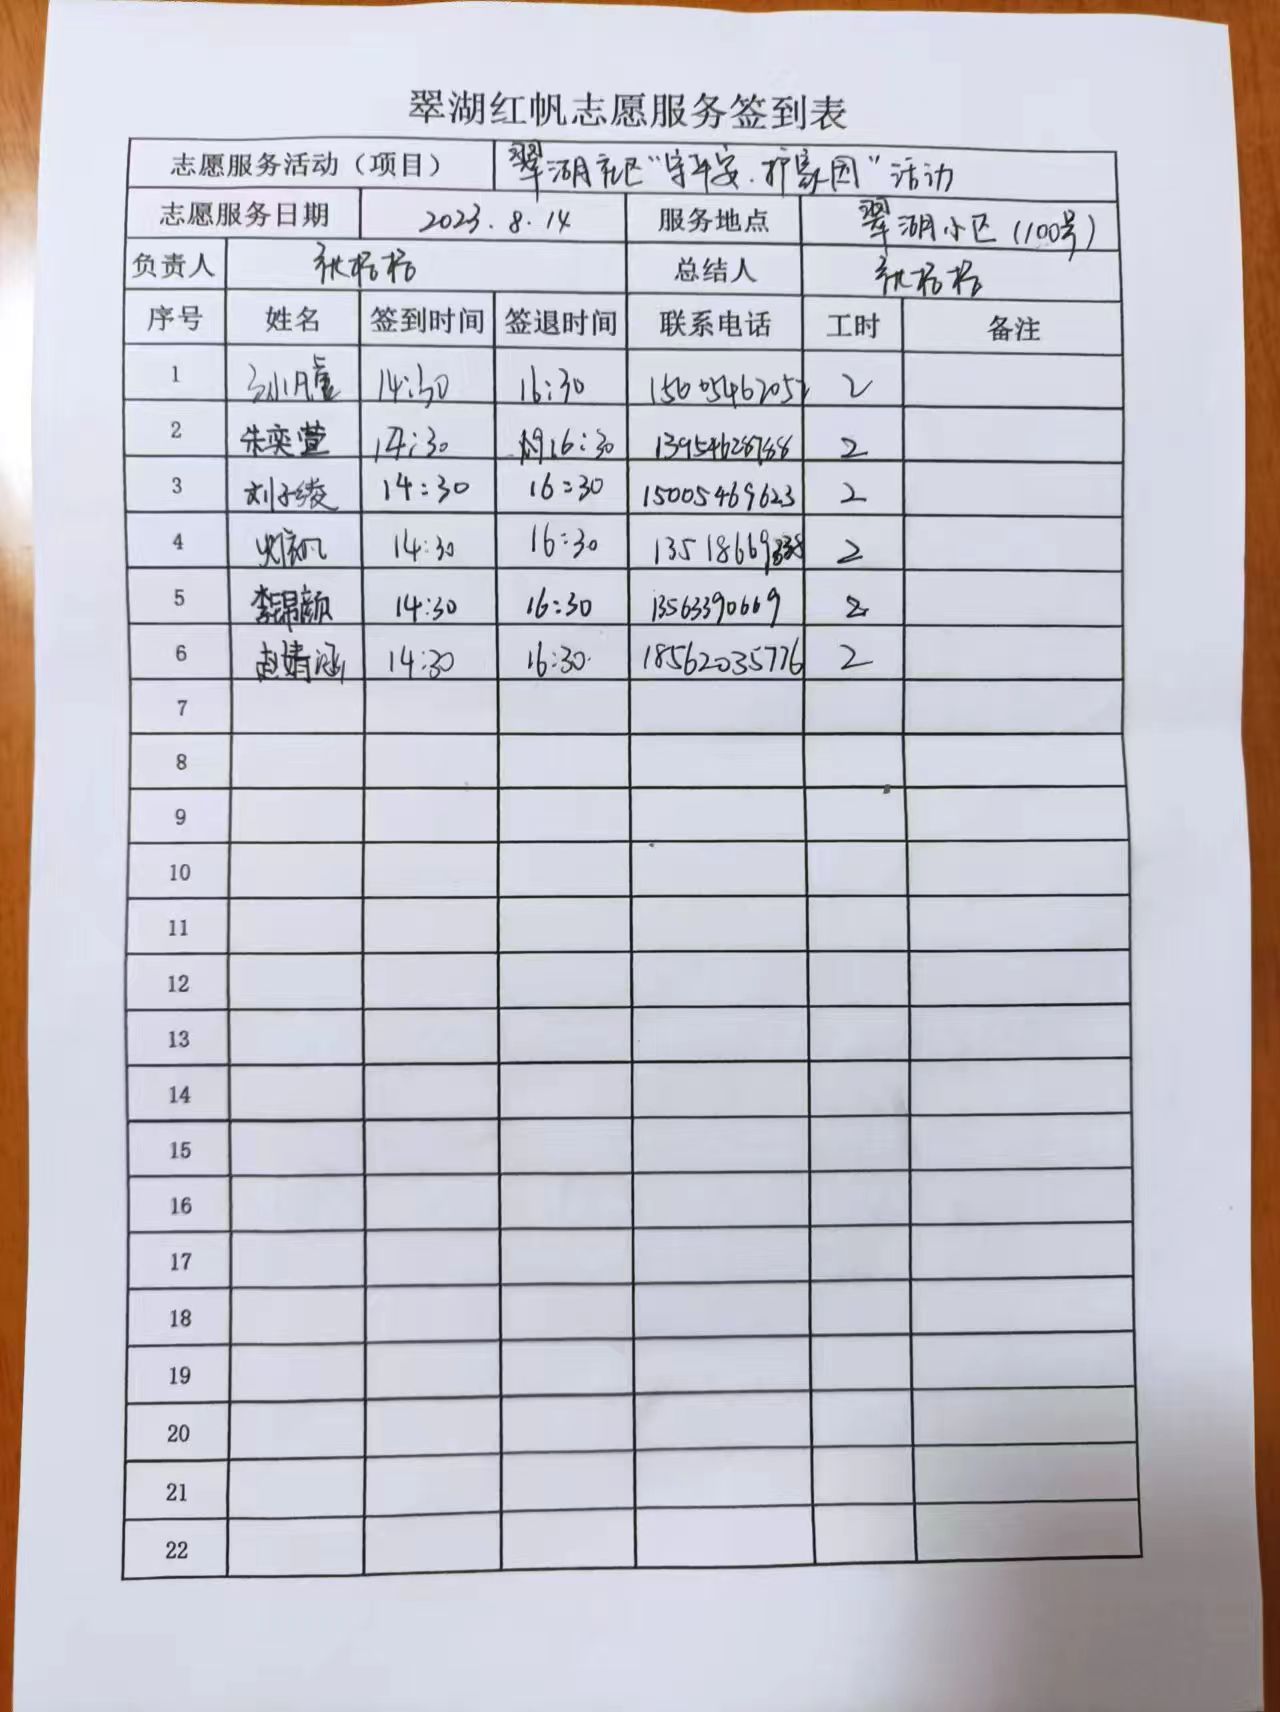 翠湖红帆志愿服务签到表
志愿服务活动（项目） 翠湖社区“守平安.护家园”活动
志愿服务日期 2023.8.14 服务地点 翠湖小区(100号)
负责人 总结人
序号 姓名 签到时间 签退时间 联系电话 工时 备注
1 14:30 16:30 2
2 朱奕萱 14:30 16:30 13954628788 2
3 刘子绫 14:30 16:30 15005469623 2
4 14:30 16:30 2
5 李锦颜 14:30 16:30 13563390669 2
6 赵婧涵 14:30 16:30 18562035776 2
7
8
9
10
11
12
13
14
15
16
17
18
19
20
21
22